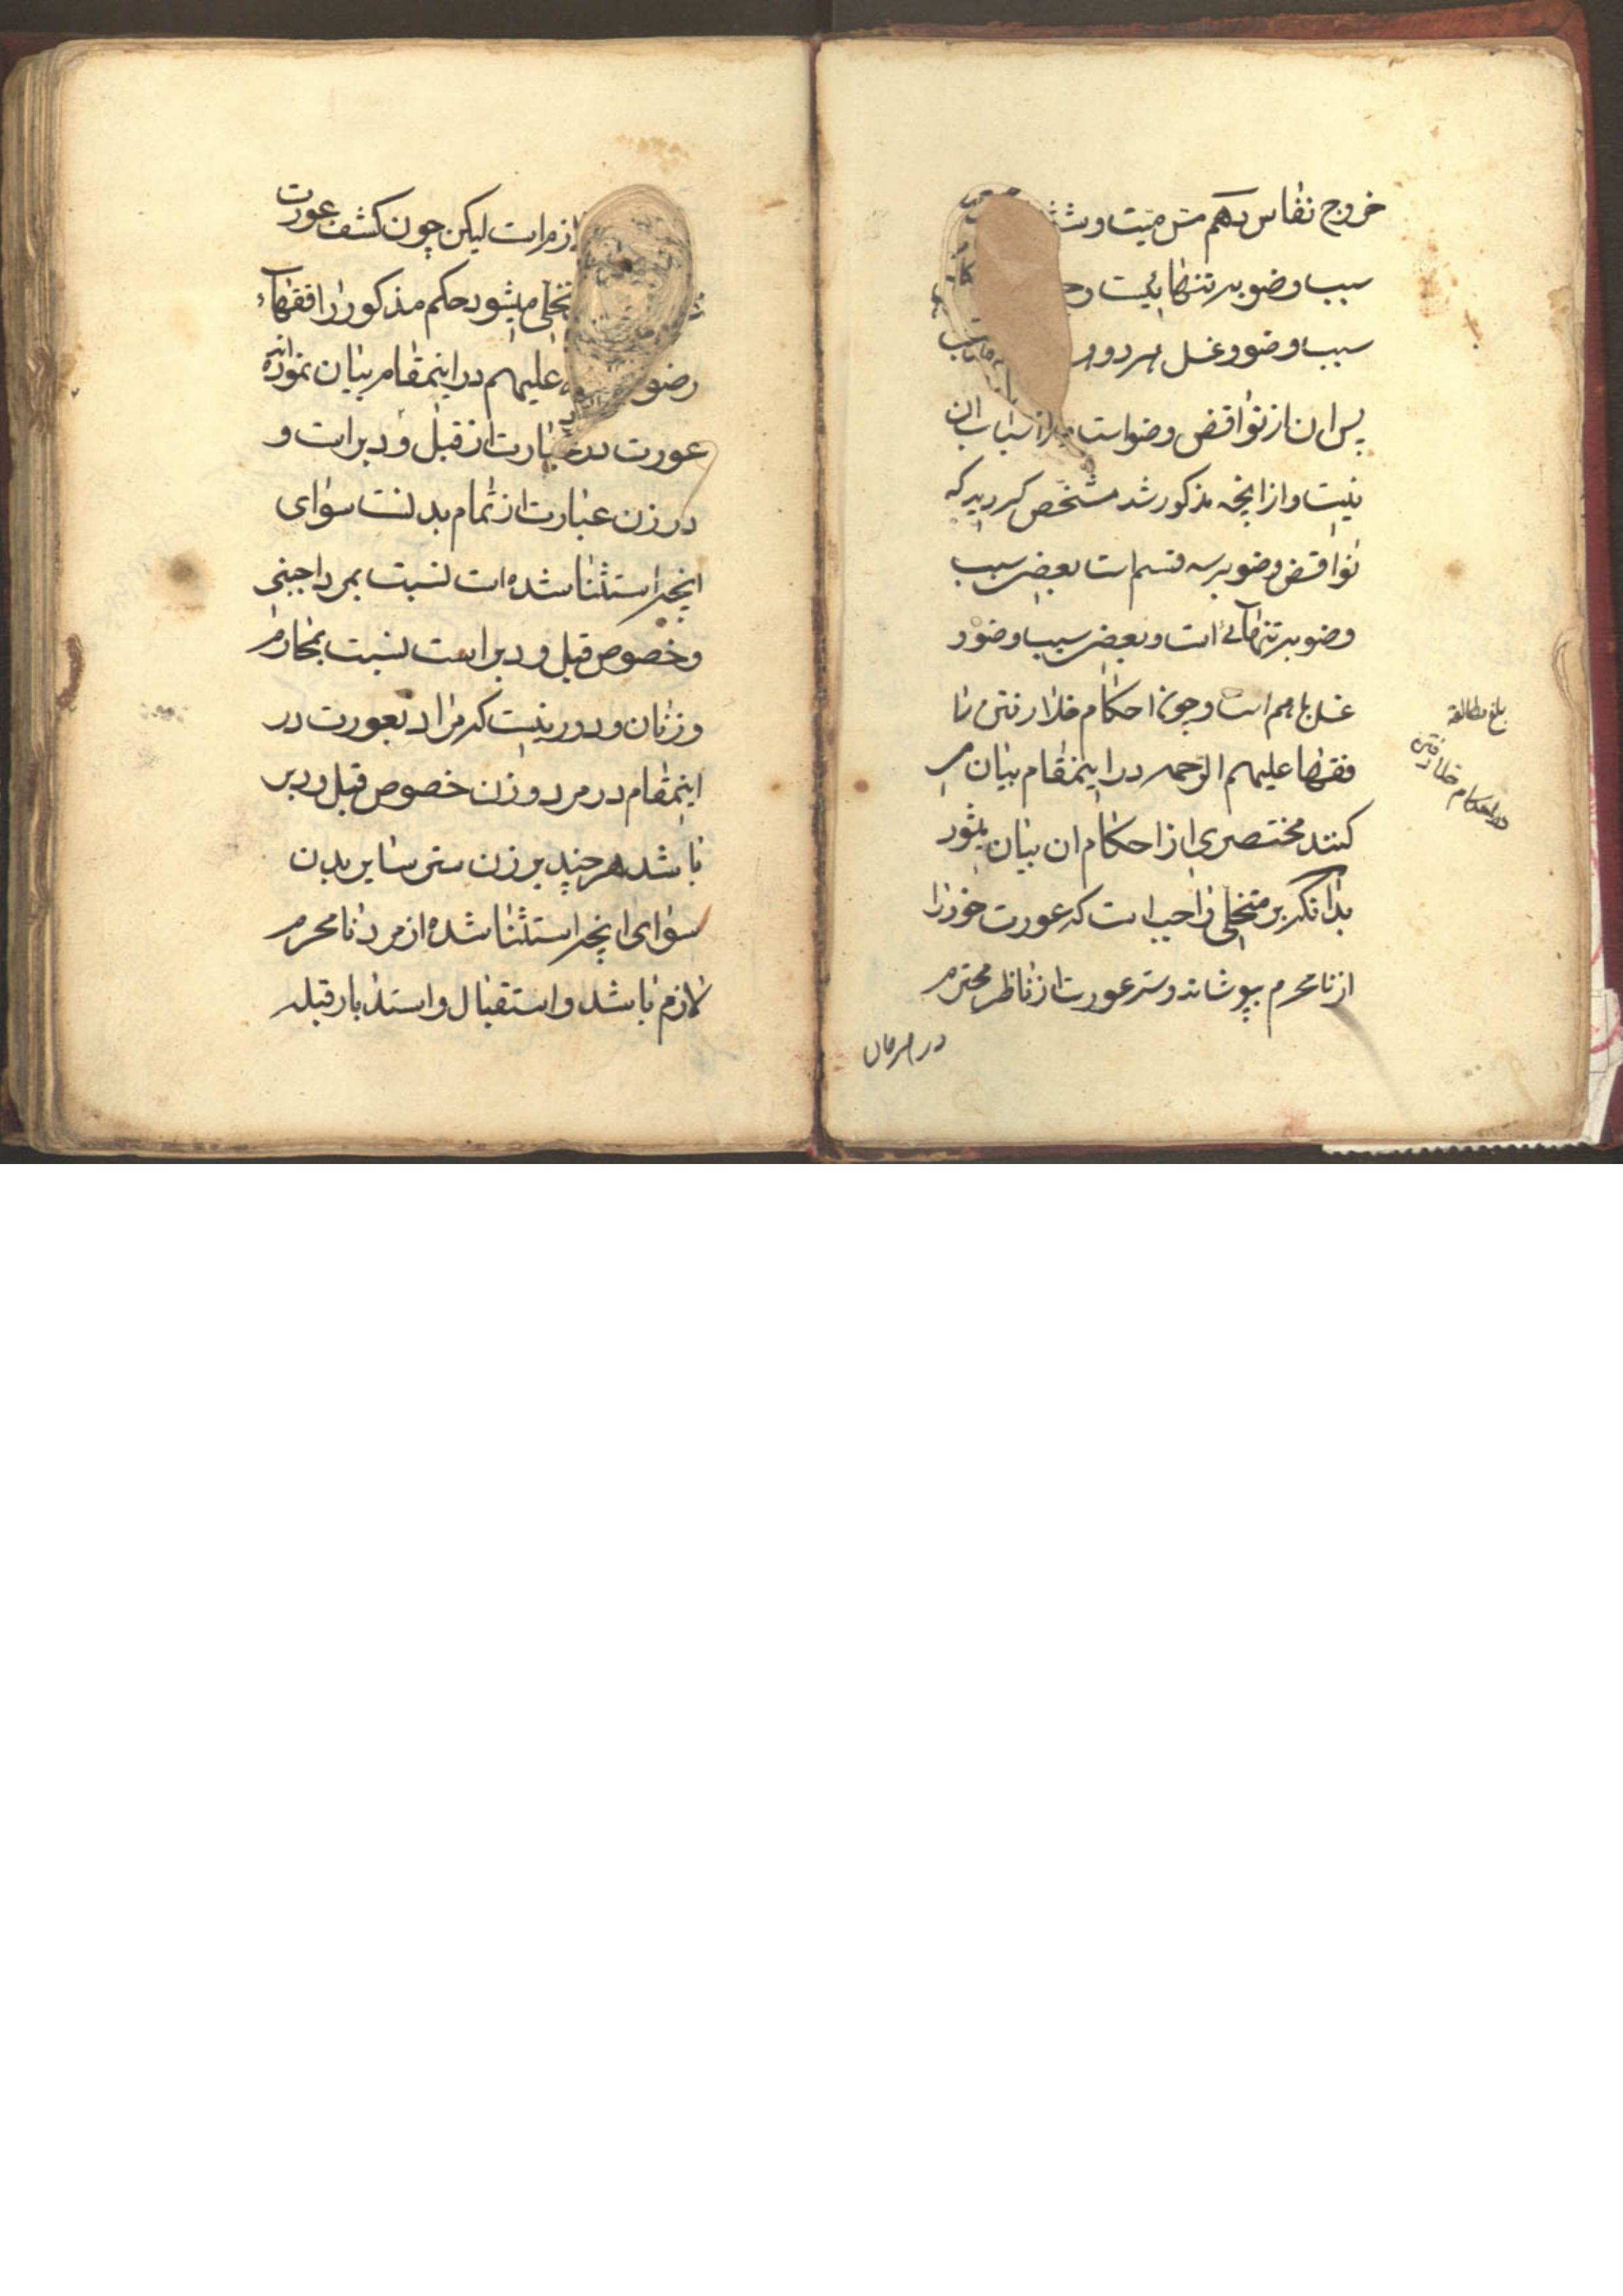 خروج نفاس دهم مس میت و شش
سبب وضو به تنهائیست و
سبب وضو و غسل هر دو
پس ان از نواقض وضو است از اسباب ان
نیست و از انچه مذکور شد مشخص کردید که
نواقض وضو بر سه قسم است بعضی سبب
وضو به تنهائی است و بعضی سبب وضو و
غسل با هم است و چون احکام خلا رفتن را
فقها علیهم الرحمه در اینمقام بیان می
کنند مختصری از احکام ان بیان میشود
بدانکه بر متخلی واجب است که عورت خود را
از نامحرم بپوشاند و ستر عورت از ناظر محترم
در هر مان
بلغ مطالعة
در احکام خلا رفتن
لازم است لیکن چون کشف عورت
تخلی میشود حکم مذکور را فقهاء
رضو علیهم در اینمقام بیان نموده اند
عورت در عبارت از قبل و دبر است و
در زن عبارت از تمام بدنست سوای
انچه استثنا شده است نسبت بمرد اجنبی
و خصوص قبل و دبر است نسبت بمحارم
و زنان و دور نیست که مراد بعورت در
اینمقام در مرد و زن خصوص قبل و دبر
باشد هر چند بر زن ستر سایر بدن
سوای انچه استثنا شده از مرد نامحرم
لازم باشد و استقبال و استدبار قبله